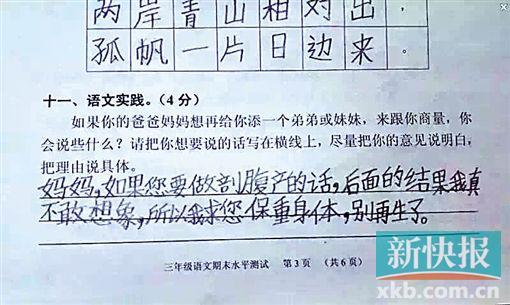 两岸青山相对出,
孤帆一片日边来。
十一、语文实践。(4分)
如果你的爸爸妈妈想再给你添一个弟弟或妹妹，来跟你商量，你
会说些什么？请把你想要说的话写在横线上，尽量把你的意见说明白，
把理由说具体。
妈妈，如果您要做剖腹产的话，后面的结果我真
不敢想象，所以我求您保重身体，别再生了。
三年级语文期末水平测试 第3页 (共6页)
新快报
xkb.com.cn